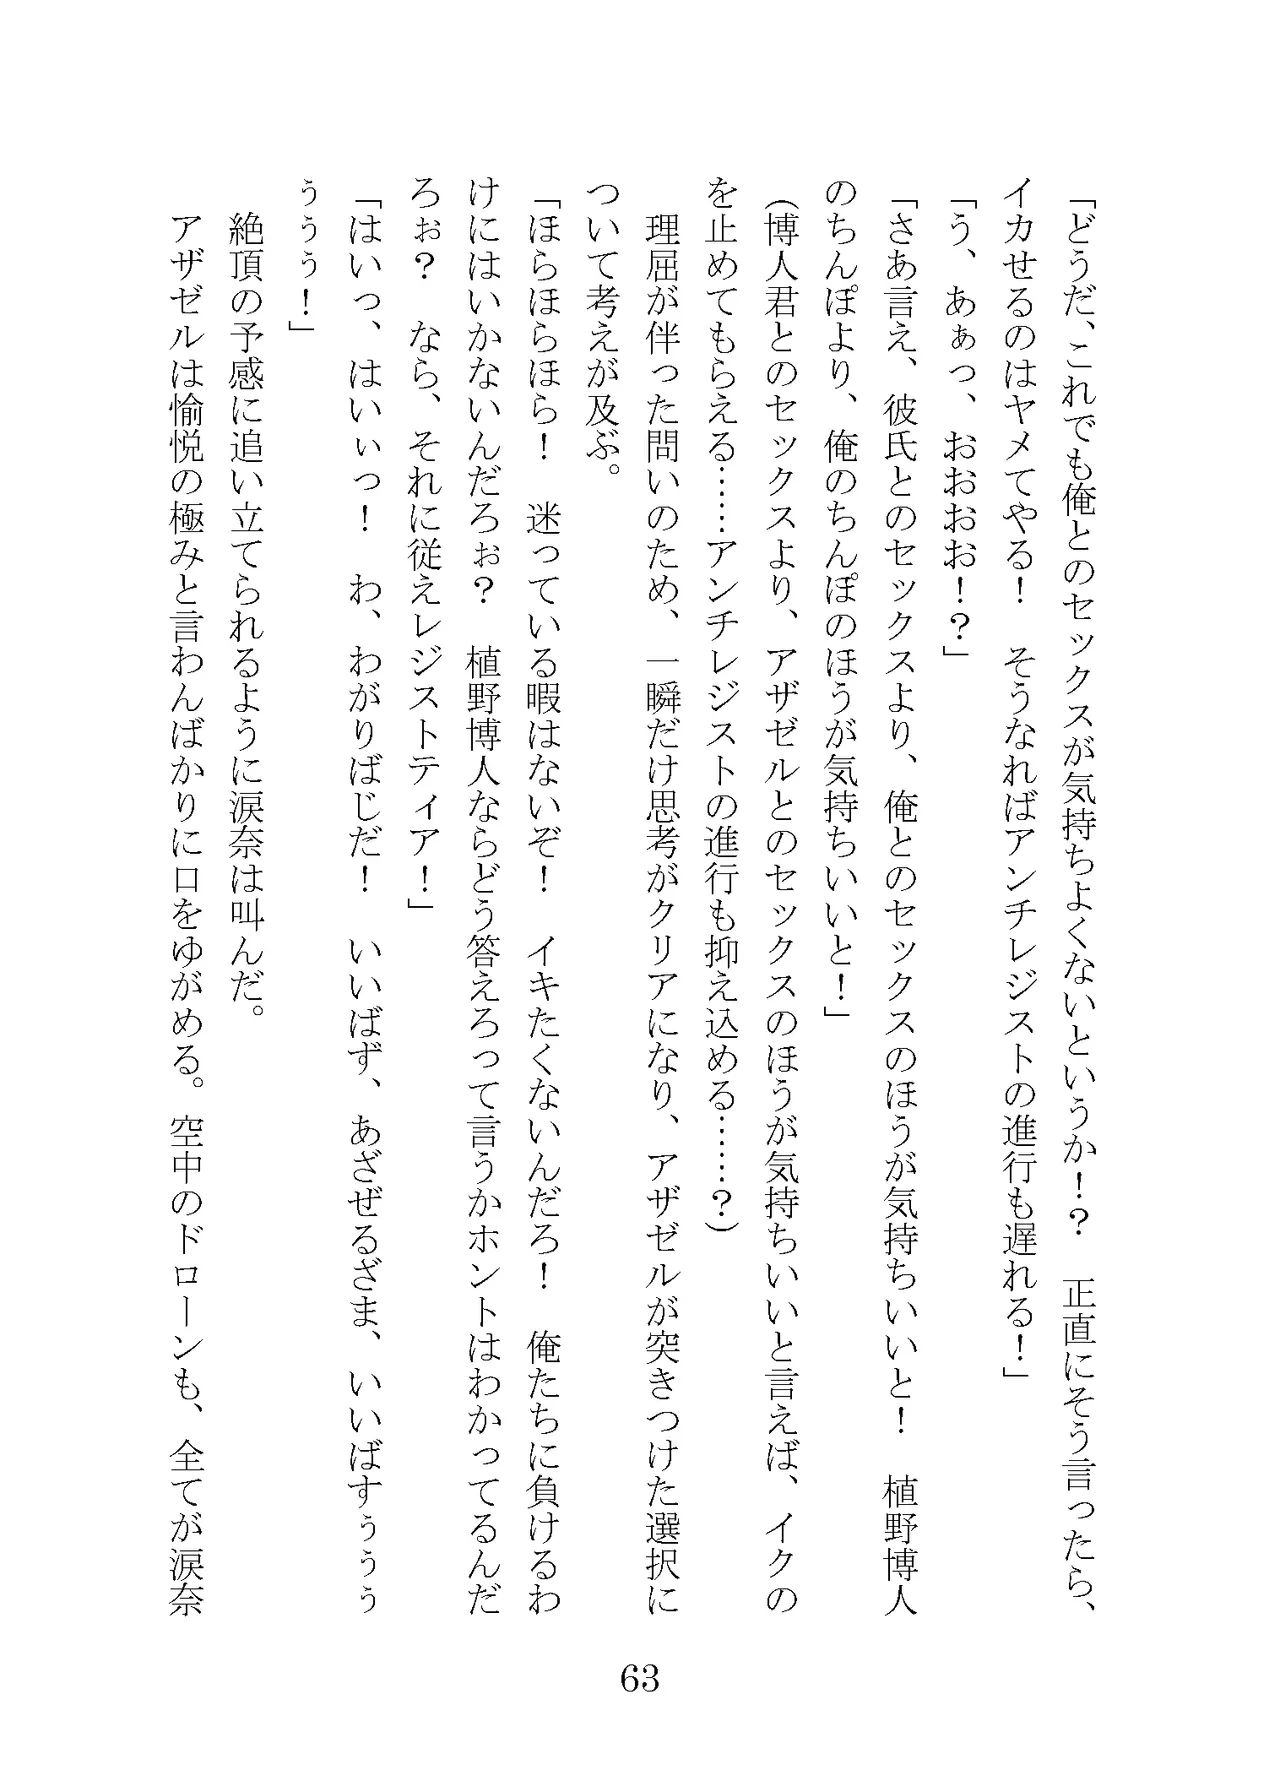 「どうだ、これでも俺とのセックスが気持ちよくないというか！？　正直にそう言ったら、
イカせるのはヤメてやる！　そうなればアンチレジストの進行も遅れる！」
「う、あぁっ、おおおお！？」
「さあ言え、彼氏とのセックスより、俺とのセックスのほうが気持ちいいと！　植野博人
のちんぽより、俺のちんぽのほうが気持ちいいと！」
（博人君とのセックスより、アザゼルとのセックスのほうが気持ちいいと言えば、イクの
を止めてもらえる……アンチレジストの進行も抑え込める……？）
　理屈が伴った問いのため、一瞬だけ思考がクリアになり、アザゼルが突きつけた選択に
ついて考えが及ぶ。
「ほらほらほら！　迷っている暇はないぞ！　イキたくないんだろ！　俺たちに負けるわ
けにはいかないんだろぉ？　植野博人ならどう答えろって言うかホントはわかってるんだ
ろぉ？　なら、それに従えレジストティア！」
「はいっ、はいぃっ！　わ、わがりばじだ！　いいばず、あざぜるざま、いいばすぅぅぅ
ぅぅぅ！」
　絶頂の予感に追い立てられるように涙奈は叫んだ。
　アザゼルは愉悦の極みと言わんばかりに口をゆがめる。空中のドローンも、全てが涙奈
63